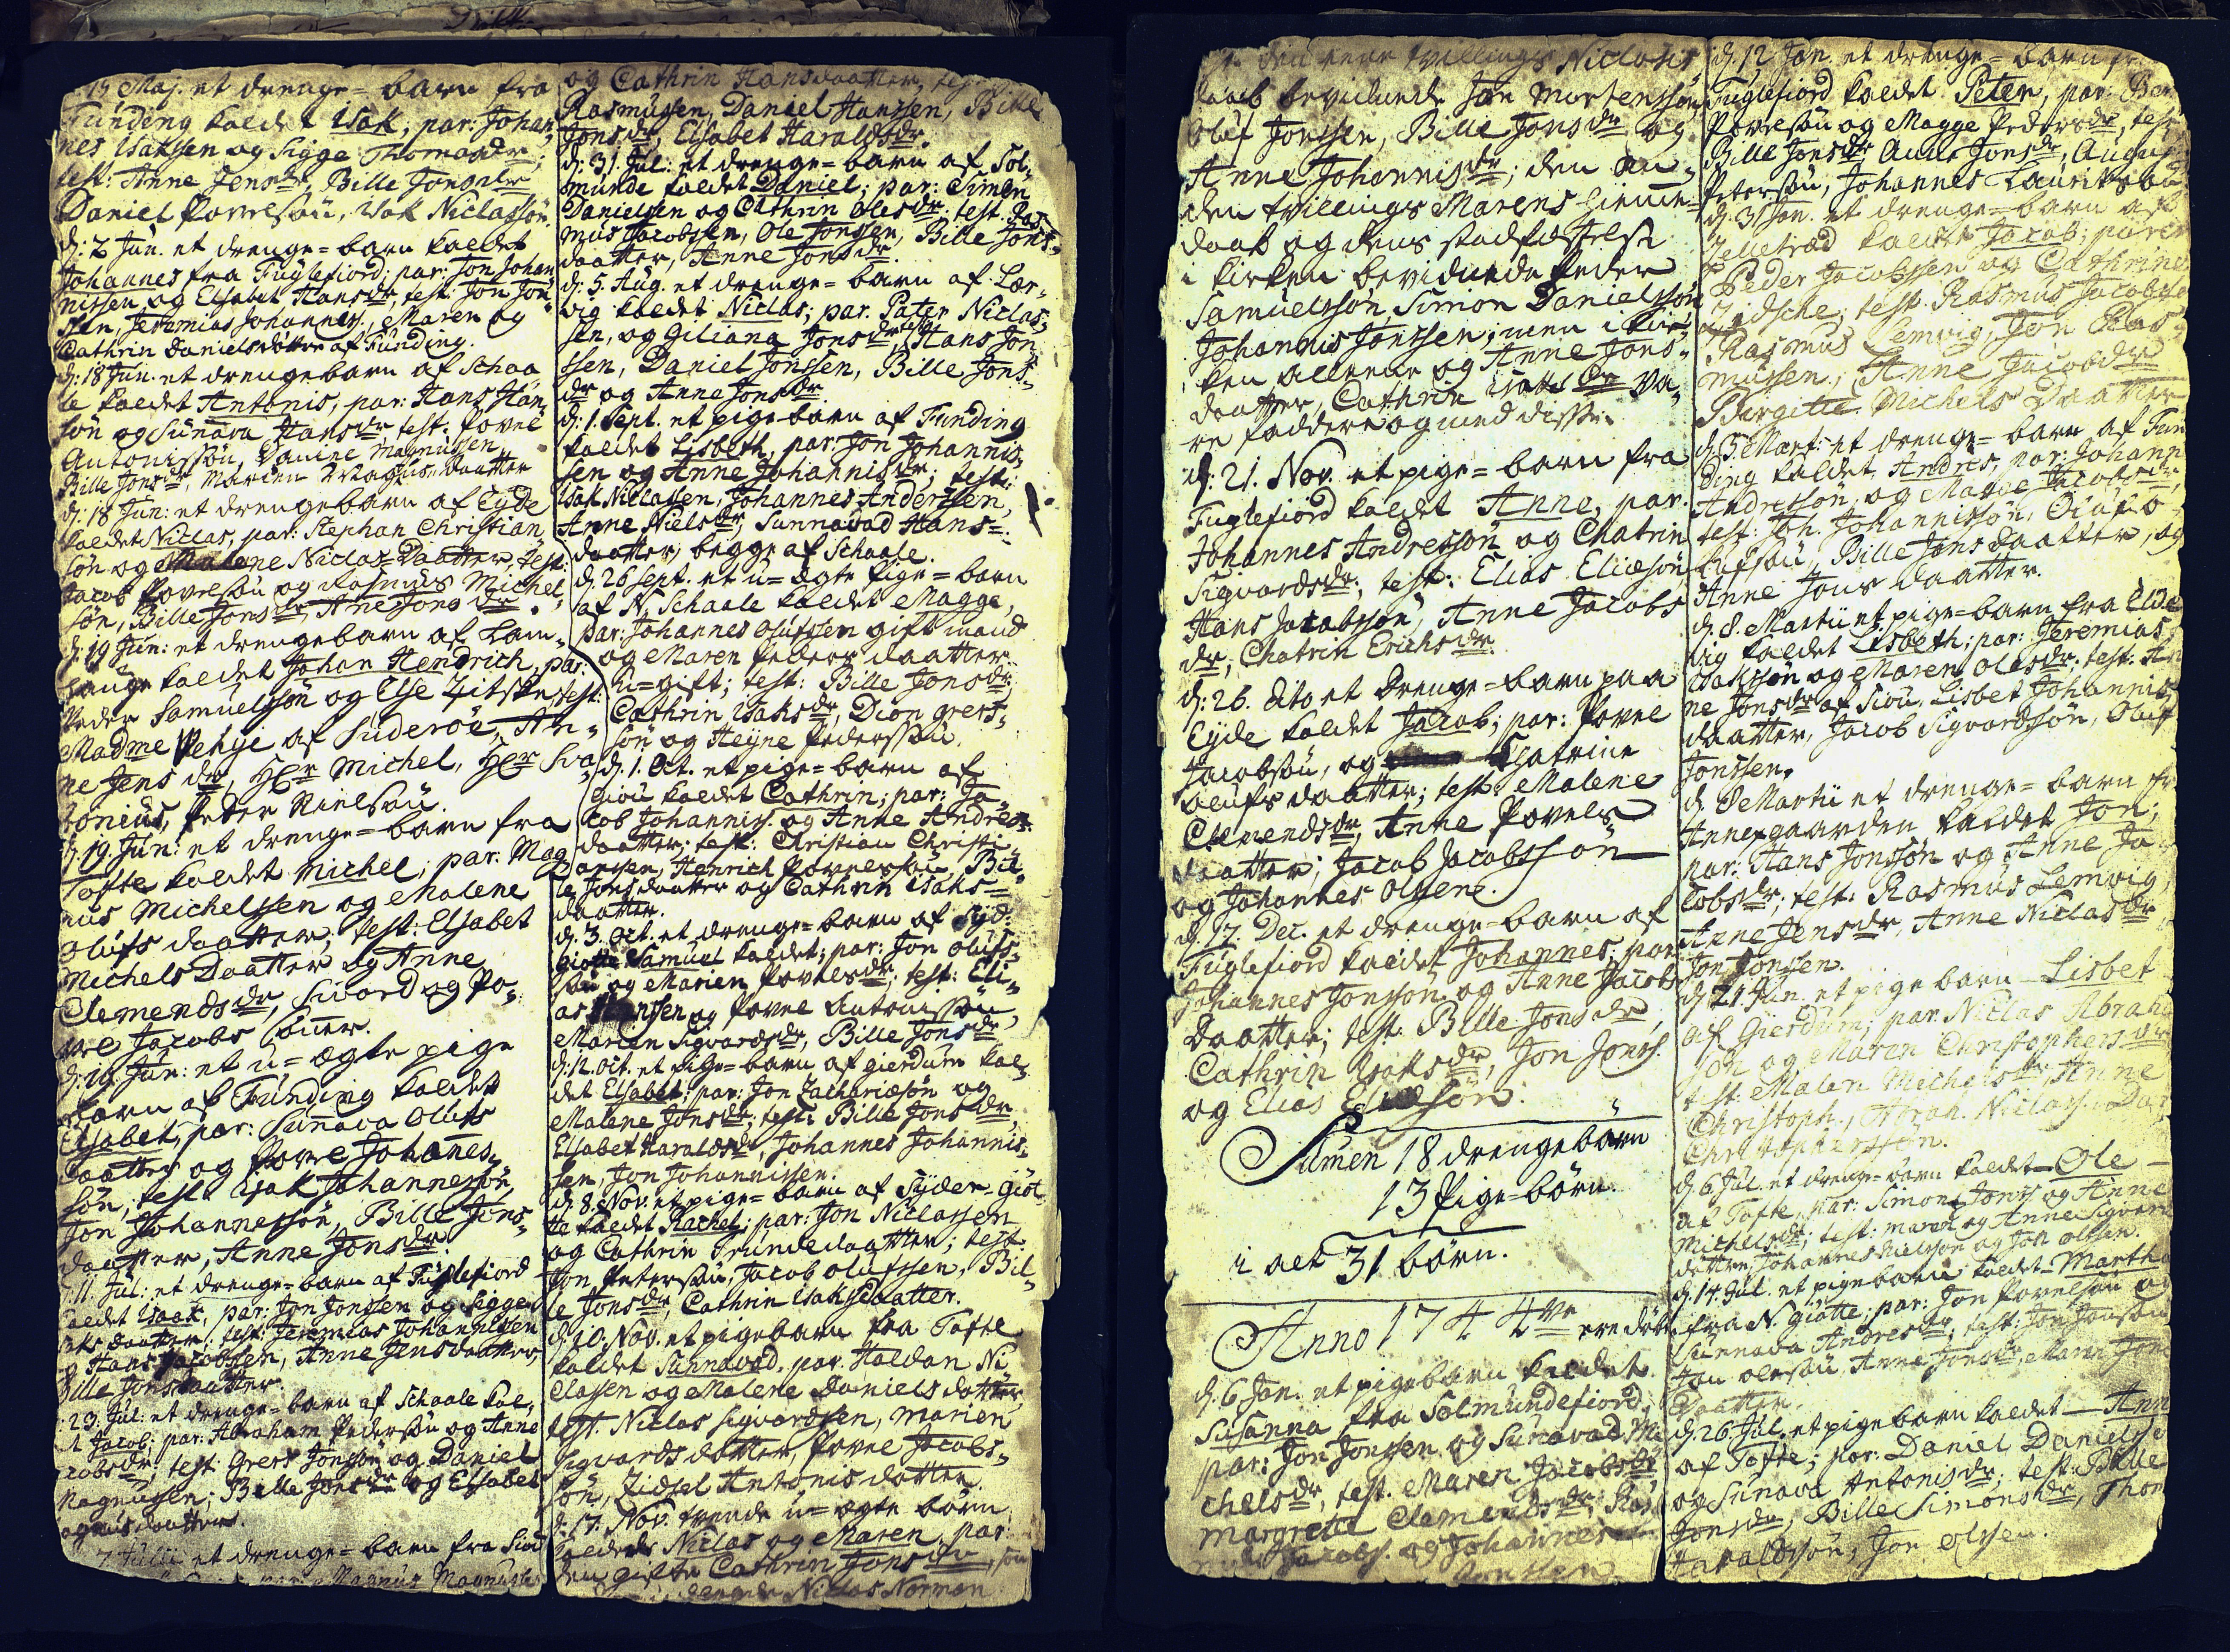 15 Maj. et drenge=barn fra
Funding kaldet Isak, par: Johan,
nes Isaksen og Sigge Thomasdr,
test: Anne Jensdr, Bille Jonsdr
Daniel Povelsøn, Isak Niclassøn
d: 2 Jun. et drenge=barn kaldet
Johannes fra Fuglefiord; par: Jon Johan
nissen og Elsabet Hansdr, test. Jon Jon
sen, Jeremias Johannes. Maren og
Cathrin Danielsdøttre af Funding.
d: 18 Jun. et drengebarn af Schaa
le kaldet Antonis, par: Hans Han
søn og Sunava Hansdr, test. Povel
Antonissøn, Daniel Magnussen
Bille Jonsdr, Marien Magnusdaatter
d: 18 Jun: et drengebarn af Eyde
kaldet Niclas, par: Stephan Christian
søn og Malene Niclas Daatter, test:
Jacob Povelsøn og Rasmus Michel
søn, Bille Jonsdr, Ane Jonsdr.
d: 19 Jun: et drengebarn af Lam,
hauge kaldet Johan Hendrich, par:
Peder Samuelsøn og Else Zitske, test:
Madme Pehje af Suderöe, An=
ne Jensdr, Hr Michel, Hr Sva
bonius, Peder Nielsøn.
d. 19. Jun: et drenge=barn fra
Tofte kaldet Michel, par. Mag
nus Michelssen og Malene
Olufs daatter, test: Elsabet
Michels Daatter og Anne
Clemendsdr, Sivord og Po=
vel Jacobs sønner.
d: 19. Jun: et u=ægte pige
barn af Funding kaldet
Elsabet, par: Sunava Olufs
daatter og Povel Johannes,
søn, test. Isak Johannessøn,
Jon Johannessøn, Bille Jons=
daatter, Anne Jonsdr.
d. 11. Jul: et drenge=barn af Fuglefiord
kaldet Isaak, par: Jon Jonssen og Sigge
Isaks daatter, test: Jeremias Johannissen
og Hans Jacobssen, Anne Jensdaatter
Bille Jonsdaatter.
23. Jul: et drenge=barn af Schaale kal,
det Jacob, par: Abraham Pedersøn og Anne
Jacobsdr, test: Grers Jonsøn og Daniel
Magnusen; Bille Jonsdr og Elsabet
Magnusdaatter.
7 Julii et drenge=barn fra Siou
Magnus Magnussen
og Cathrin Hansdaatter,
Rasmussen, Daniel Hanssen, Bille
Jonsdr, Elsabet Haraldsdr.
d: 31 Jul: et drenge=barn af Sol,
munde kaldet Daniel; par: Simen
Danielsen og Cathrin Olesdr, test. Ras
mus Jacobssen, Ole Jonssen, Bille Jons=
daatter, Anne Jonsdr.
d: 5. Aug. et drenge=barn af Lær,
vig kaldet Niclas; par. Pater Niclas=
sen, og Giliana Jonsdr, test. Hans Jon
ssen, Daniel Jonssen, Bille Jons=
dr og Anne Jonsdr.
d: 1. Sept. et pige=barn af Funding
kaldet Lisbeth, par: Jon Johannis,
sen og Anne Johannisdr, test:
Isak Niclassen, Johannes Anderssen,
Anne Nielsdr, Sunnavad Hans=
daatter, begge af Schaale.
d. 26 Sept. et u=ægte pige=barn
af N. Schaale kaldet Magge,
par: Johannes Olufssen gift mand
og Maren Peders daatter
u=gift; test: Bille Jonsdr,
Cathrin Isaksdr, Dion Grers=
søn og Heyne Pederssøn.
d. 1. Oct. et pige=barn af
Giou kaldet Cathrin; par: Ja=
cob Johannis. og Anne Andreas
daatter; test: Christian Christi=
ansen, Henrich Povelssøn, Bil=
le Jonsdaatter og Cathrin Isaks=
daatter.
d. 3. Oct. et drenge=barn af Syd.
Giotte Samuel kaldet; par: Jon Olufs=
søn og Marien Povelsdr, test: Eli=
as Hansen og Povel Antonissøn,
Marien Sigvardsdr, Bille Jonsdr.
d: 12. Oct. et pige=barn af Gierdum kal=
det Elsabet; par: Jon Zachariæsøn og
Malene Jonsdr, test. Bille Jonsdr,
Elsabet Haraldsdr, Johannes Johannis=
sen, Jon Johannissen.
d. 8. Nov. et pige=barn af Syder=Giöt
te kaldet Rachel; par: Jon Niclassen
og Cathrin Trundedaatter; test
Jon Peterssøn, Jacob Olufssen, Bil=
le Jonsdr, Cathrin Isaksdaatter.
d. 10. Nov. et pigebarn fra Tofte
kaldet Sunnavad, par. Haldan Ni
classen og Malene Daniels datter,
test. Niclas Sigvardssen, Marien
Sigvards datter, Povel Jacobs=
søn, Zidsel Antonis datter.
d. 17. Nov. tvende u=ægte børn
kaldede Niclas og Maren, par:
den gifte Cathrin Jonsdr,
Niclas Norman
den eene tvillings Niclases
daab bevidnede Jon Mortenssøn
Oluf Jonssen, Bille Jonsdr og
Anne Johannisdr; den an=
den tvillings Marens Hiemme=
daab og dens stadfæstelse
i kirken bevidnede Peder
Samuelssøn, Simon Danielssøn
Johannis Jonssen; men i kir=
ken alleene og Anne Jons=
daatter, Cathrin Isaksdr va=
re faddere og med disse.
d: 21. Nov. et pige=barn fra
Fuglefiord kaldet Anne, par.
Johannes Andressøn og Chatrin
Sigvardsdr. test: Elias Eliæsøn
Hans Jacobssøn, Anne Jacobs
dr, Chatrin Erichsdr.
d: 26. dito et drenge=barn paa
Eyde kaldet Jacob; par: Povel
Jacobsøn, og Chatrine
Olufs daatter; test. Malene
Clemendsdr, Anne Povels
daatter; Jacob Jacobssøn
og Johannes Olsene.
d: 17. Dec. et drenge=barn af
Fuglefiord kaldet Johannes; par:
Johannes Jonsson og Anne Jacobs
Daatter; test: Bille Jonsdr,
Cathrin Isaksdr, Jon Jonss.
og Elias Eliæsøn.
Sumen 18 drengebørn
13 Pige=børn.
i alt 31 børn.
Anno 1744 ere døbte
d. 6 Jan. et pigebarn kaldet
Susanna fra Solmundefiord,
par: Jon Jonssen og Sunavad Mi
chelsdr, test. Maren Jacobsdr
Margrette Clemendsdr, Ras
mus Jacobs. og Johannes
Jonssen
d. 12 Jan. et drenge=barn
Fuglefiord kaldet Peter, par:
Povelsøn og Magge Pedersdr, test
Bille Jonsdr, Anne Jonsdr,
Petersøn, Johannes Lauritssøn
d. 31 Jan. et drenge=barn af
Zelletræd kaldet Jacob; par
Peder Jacobssen og Cathrine
Zidsche, test. Rasmus Jacobs
Rasmus Lemvig, Jon Ras
mussen, Anne Jacobdr
Birgitte Michels Daatter
d. 5. Mart. et drenge=barn af Fun
ding kaldet Andres, par: Johann
Andressøn og Magge Jacobsdr,
test: Joh. Johannissøn, Oluf O
lufsøn, Bille Jonsdaatter, og
Anne Jons daatter.
d. 8. Martii et pige=barn fra Elde
vig kaldet Lisbeth; par: Jeremias
Isakssøn og Maren Olesdr. test: An
ne Jonsdr af Siou, Lisbet Johannis
daatter, Jacob Sigvardssøn, Oluf
Jonssen.
d. 8 Martii et drenge=barn fr
Annexgaarden kaldet Jon,
par: Hans Jonsøn og Anne Ja
cobsdr, test: Rasmus Lemvig,
Anne Jensdr, Anne Niclasdr
Jon Jonssen.
d. 21 Jun. et pigebarn Lisbet
af Gierdum; par. Niclas Abrah
søn og Maren Christophersdr
test. Malen Michelsdr, Anne
Christoph., Abrah. Niclass.
Christophersen.
d. 6. Jul. et drenge=barn kaldet Ole
af Tofte, par: Simon Jonss. og Anne
Michelsdr; test: Maren og Anne Sigvards
døttre, Johannes Nielssøn og Jon Olssen.
d. 14. Jul. et pigebarn kaldet Martha
fra N. Giøtte; par: Jon Povelsøn og
Sunnava Andresdr; test: Jon Jonsøn
Jon Olesøn, Anne Jonsdr, Maren Jons
Daatter.
d. 26. Jul. et pigebarn kaldet Ann
af Tofte; par: Daniel Daniels
og Sunava Antonisdr; test: Bille
Jonsdr, Bille Simonsdr, Thom
Haraldssøn, Jon Olssen.